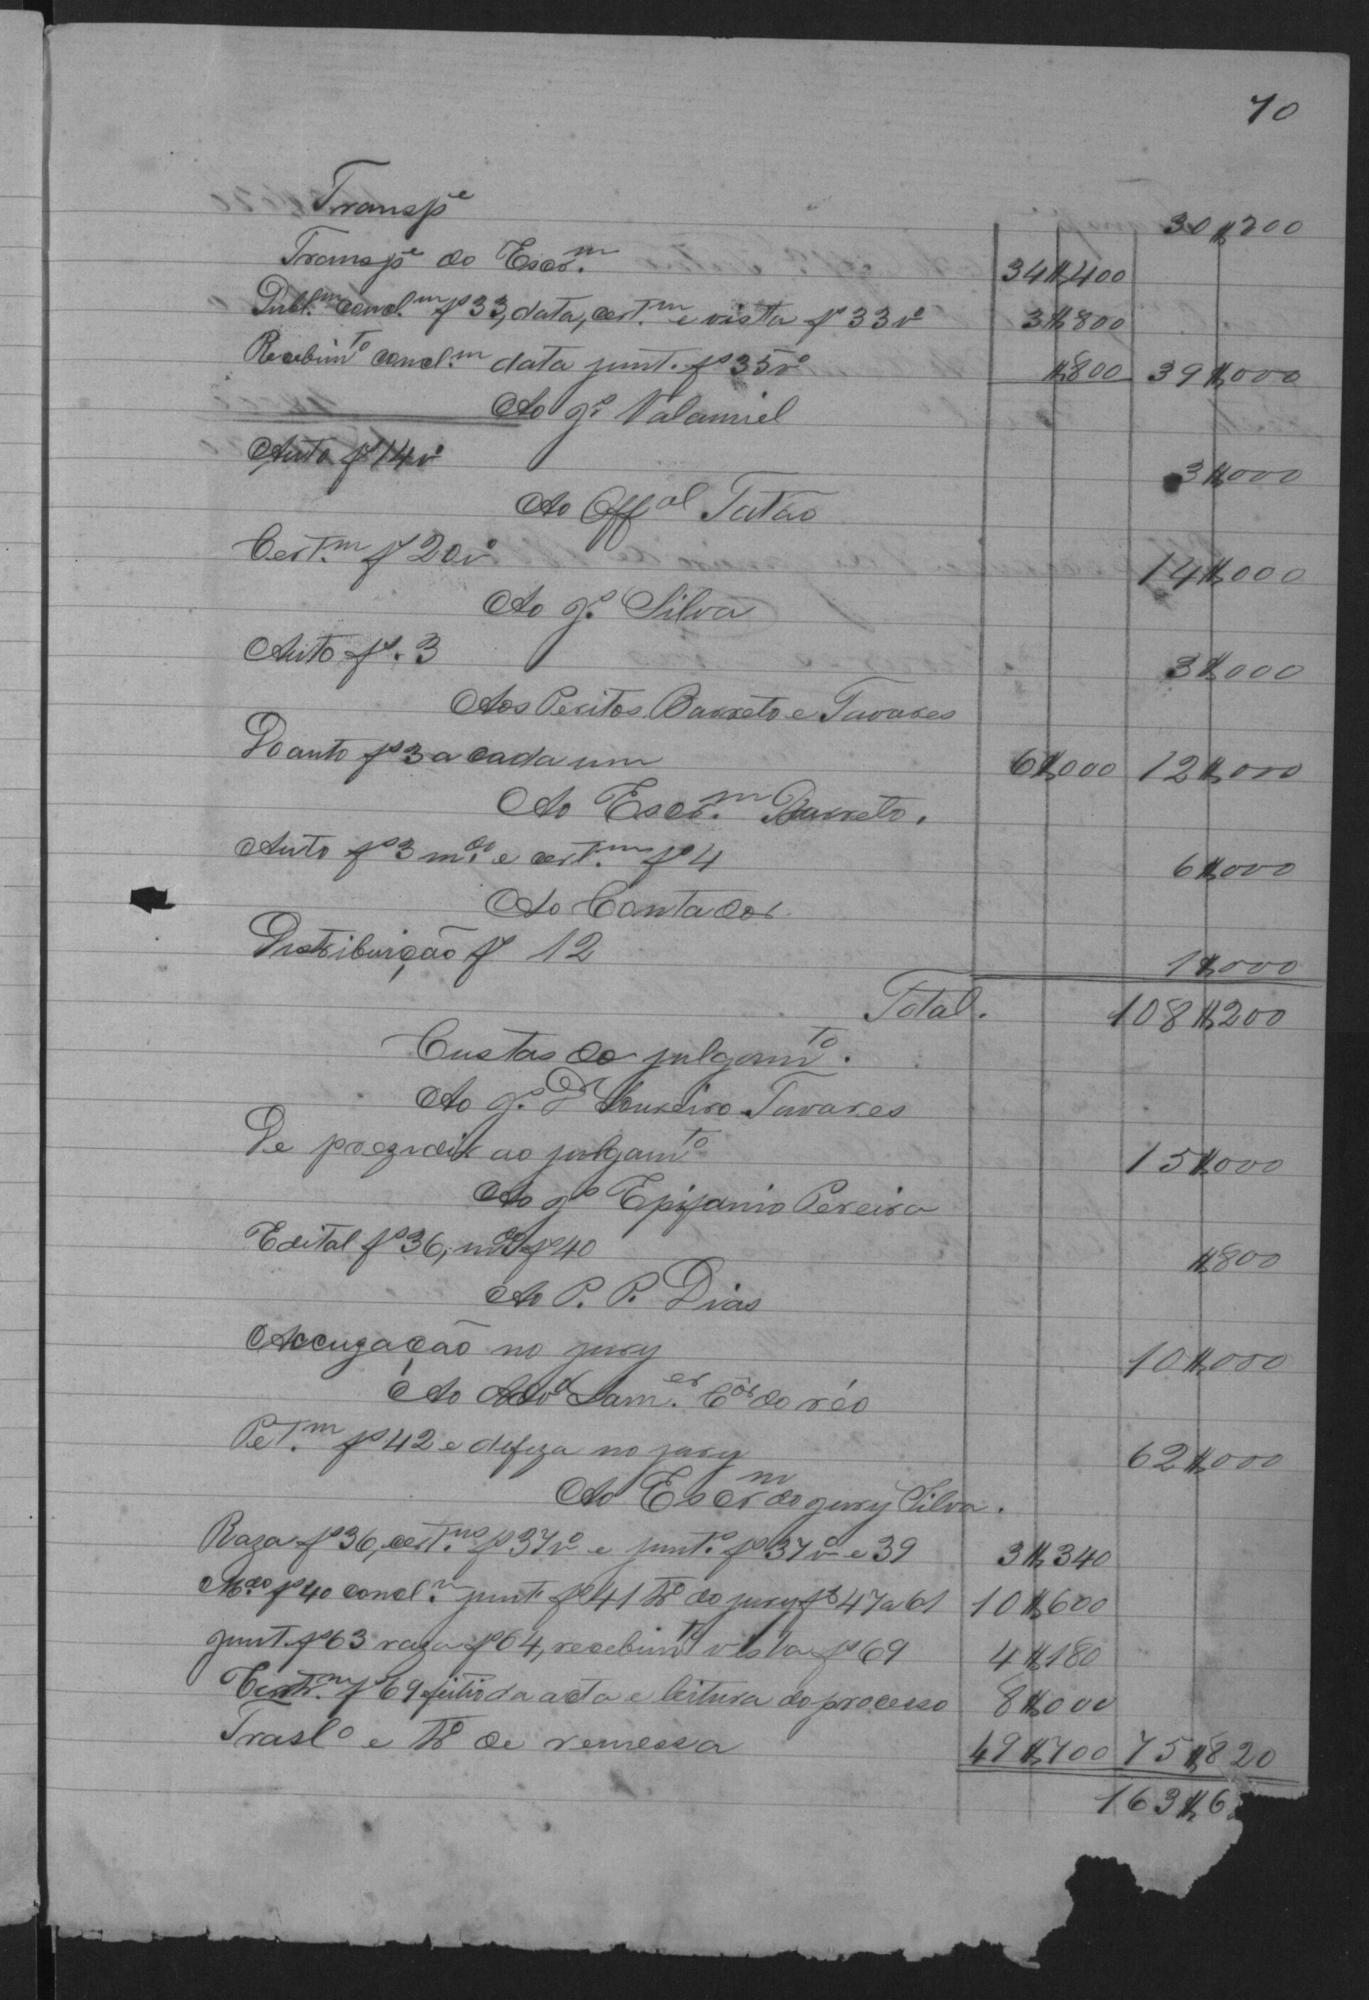 70
Transpe 30$200
Transpe do Escrm. 34$400
Publm. conclm. fs 33, data, certm. e vista fs 33vo 3$800
Recebimto conclm. data junt. fs 35vo $800 39$000
Ao Jo. Natamiel
Auto fs 14vo 3$000
Ao Offal Tatão
Certm. fs 20vo 14$000
Ao Jo. Silva
Auto fs. 3 3$000
Aos Peritos Barreto e Tavares
Do auto fs 3 a cada um 6$000 12$000
Ao Escrm. Barreto.
Auto fs 3 mdo. e certm. fs 4 6$000
Ao Contador
Distribuição fs 12 1$000
Total. 108$200
Custas do julgamto.
Ao Jo. Dr Loureiro Tavares
De prezidir ao julgamto 15$000
Ao Jo Epifanio Pereira
Edital fs 36, mdo fs 40 $800
Ao P. P. Dias
Accuzação no jury 10$000
Ao Advo Samer. Cor do réo
Petm. fs 42 e defeza no jury 62$000
Ao Escrm do jury Silva.
Raza fs 36, certms. fs 37vo e junto. fs 37vo e 39 3$340
Mdo. fs 40 conclm. junt. fs 41 to do jury fs 47 a 61 10$600
junt. fs 63 raza fs 64, recebimto vista fs 69 4$180
Certm. fs 69 feitio da acta e leitura do processo 8$000
Traslo e to de remessa 49$700 75$820
163$6